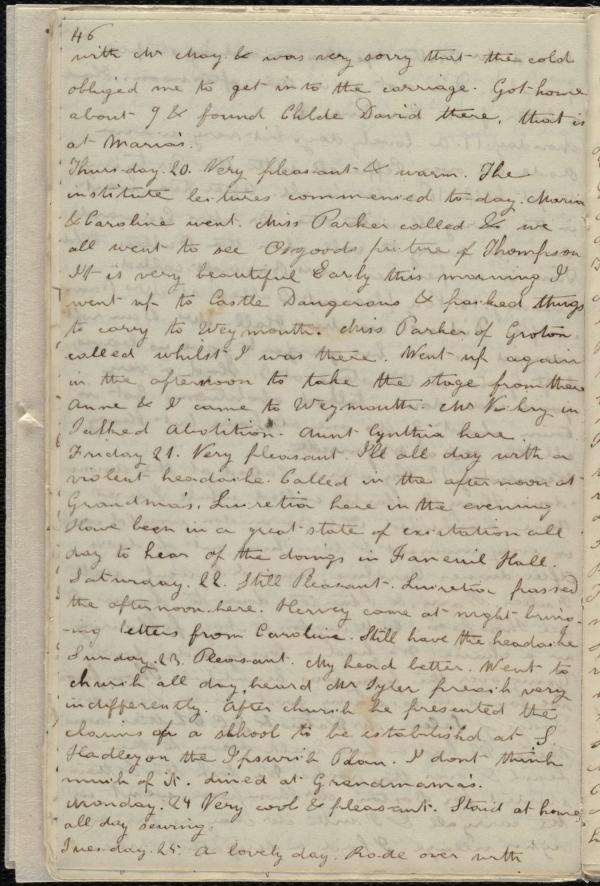 46
with Mr May & was very sorry that the cold
obliged me to get in to the carriage. Got home
about 9 & found Childe David there, that is
at Maria's.
Thursday. 20. Very pleasant & warm. The
institute lectures commenced to-day. Maria
& Caroline went. Miss Parker called & we
all went to see Osgoods picture of Thompson
It is very beautiful Early this morning I
went up to Castle Dangerous & packed things
to carry to Weymouth. Miss Parker of Groton
called whilst I was there. Went up again
in the afternoon to take the stage from there
Anne & I came to Weymouth. Mr in
Talked Abolition. Aunt Cynthia here.
Friday 21. Very pleasant. Ill all day with a
violent headache. Called in the afternoon at
Grandma's, Lucretia here in the evening
Have been in a great state of excitation all
day to hear of the doings in Faneuil Hall.
Saturday. 22. Still Pleasant. Lucretia passed
the afternoon here. Hervey came at night bring-
-ing letters from Caroline. Still have the headache
Sunday. 23. Pleasant. My head better. Went to
church all day, heard Mr Tyler preach very
indifferently. After church he presented the
claims of a school to be established at S
Hadley on the Ipswich Plan. I dont think
much of it. dined at Grandmama's.
Monday. 24 Very cool & pleasant. Staid at home
all day sewing.
Tuesday. 25. A lovely day. Rode over with